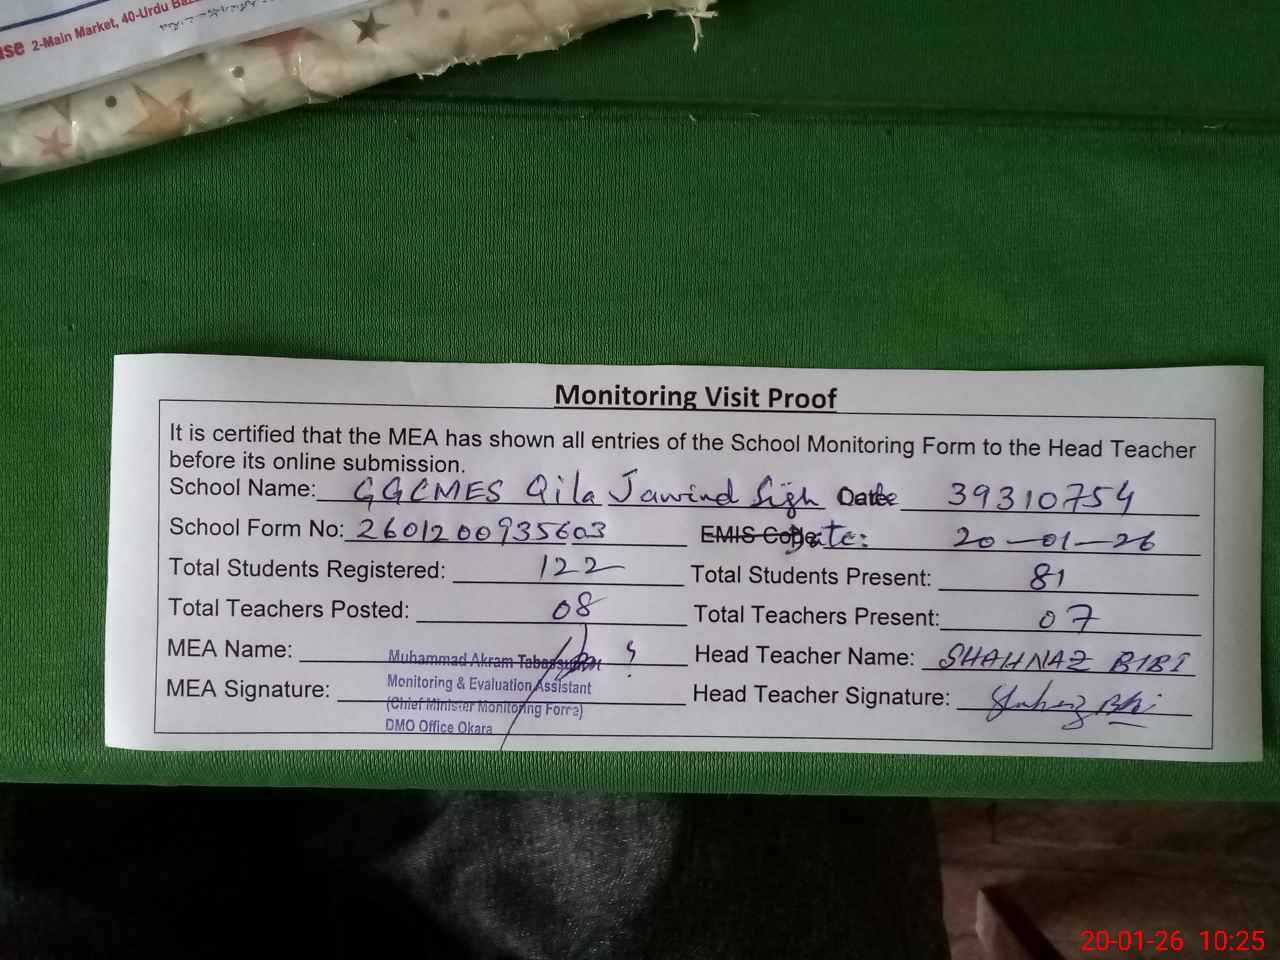 2-Main Market, 40-Urdu
Monitoring Visit Proof
It is certified that the MEA has shown all entries of the School Monitoring Form to the Head Teacher
before its online submission.
School Name: GGCMES Qila Jawind Sigh Code 39310754
School Form No: 2601200935603 EMIS Code Date: 20-01-26
Total Students Registered: 122 Total Students Present: 81
Total Teachers Posted: 08 Total Teachers Present: 07
MEA Name: Muhammad Akram Tabassum Head Teacher Name: SHAHNAZ BIBI
Monitoring & Evaluation Assistant
MEA Signature: Head Teacher Signature: Shahnaz Bibi
(Chief Minister Monitoring Force)
DMO Office Okara
20-01-26 10:25